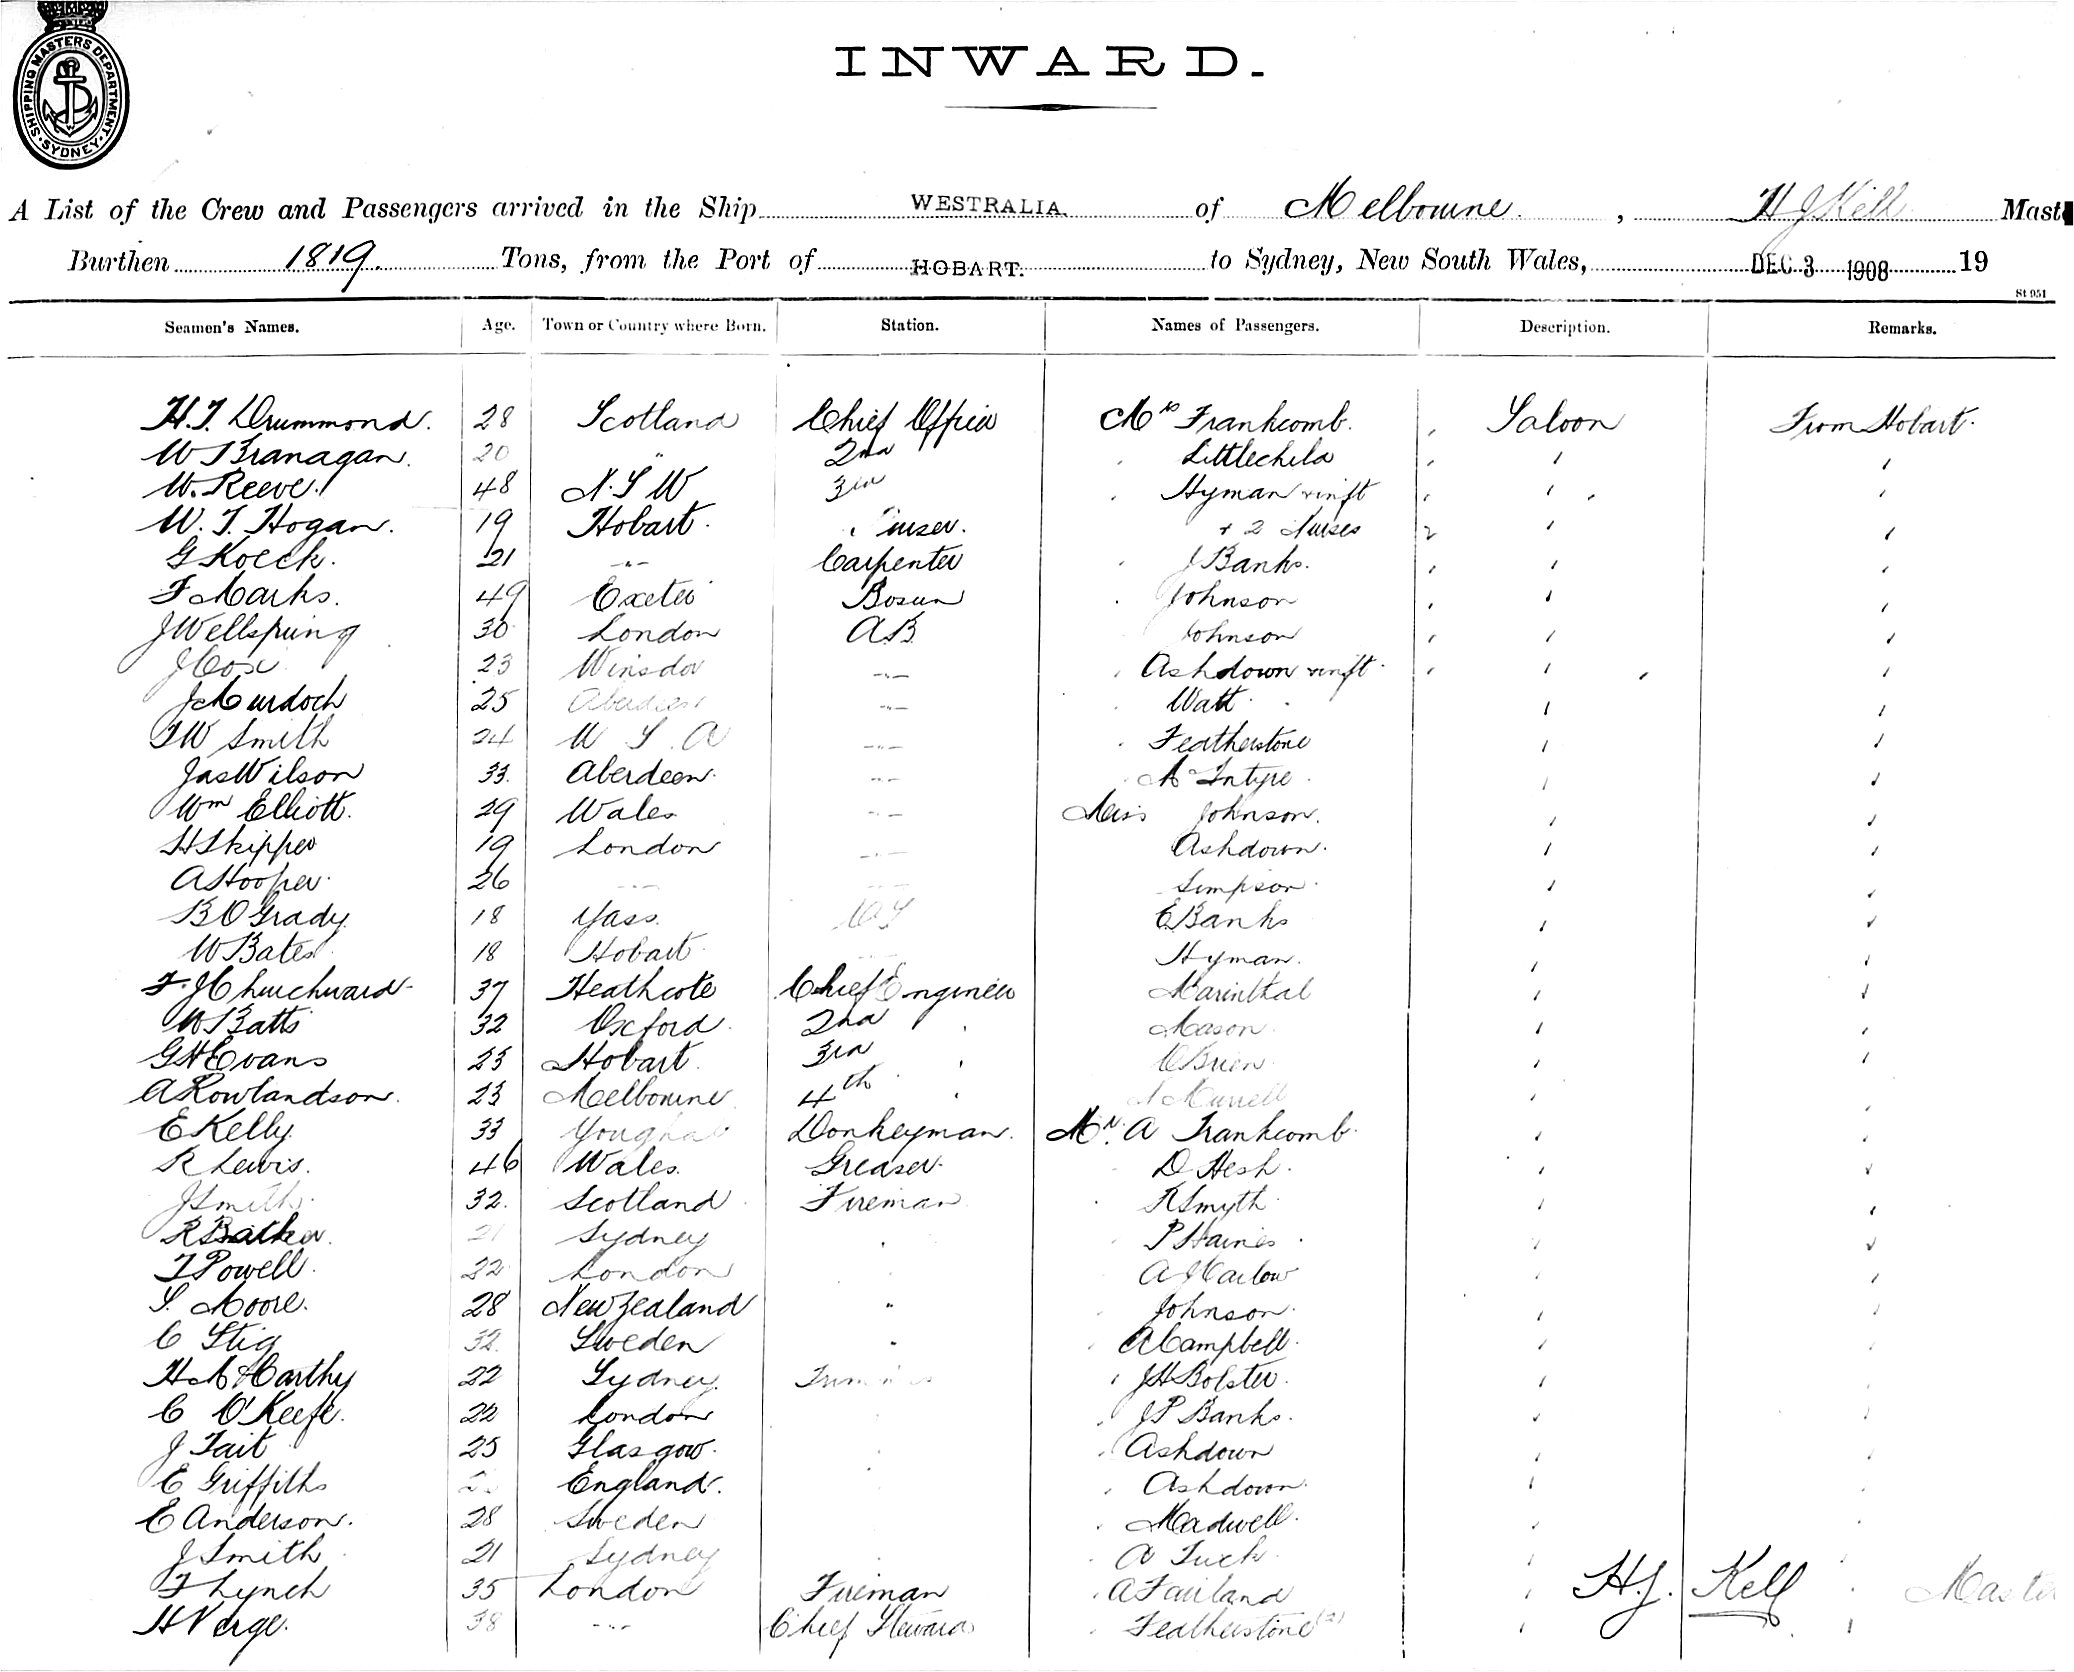 SHIPPING MASTERS DEPARTMENT
SYDNEY
INWARD.
A List of the Crew and Passengers arrived in the Ship WESTRALIA of Melbourne, H J Kell Mast
Burthen 1819. Tons, from the Port of HOBART. to Sydney, New South Wales, DEC 3 1908 19
St 951
Seamen's Names. Age. Town or Country where Born. Station. Names of Passengers. Description. Remarks.
H. J. Drummond. 28 Scotland Chief Officer Mrs Frankcomb. Saloon From Hobart.
W Branagan. 20 " 2nd Littlechild
W. Reeve. 48 N. S W 3rd Hyman & inft
W. J. Hogan. 19 Hobart. Purser. + 2 Nurses 2
G Kock. 21 -"- Carpenter J Banks.
F Marks. 49 Exeter Bosun Johnson
J Wellspring 30 London A B Johnson
J Cox 23 Winsdor -"- Ashdown & inft
J Murdoch 25 Aberdeen -"- Watt
F W Smith 24 U S A -"- Featherstone
Jas Wilson 33. Aberdeen. -"- McIntyre
Wm Elliott. 29 Wales -"- Miss Johnson.
H Skipper 19 London -"- Ashdown.
A Hooper 26 -"- -"- Simpson
B O Grady 18 Yass. O S E Banks
W Bates 18 Hobart Hyman.
F. J Churchward 37 Heathcote Chief Engineer Marinthal
W Batts 32 Oxford. 2nd Mason
G H Evans 23 Hobart. 3rd O Brien
A Rowlandson. 23 Melbourne 4th Murrell
E Kelly. 33 Youghal Donkeyman. Mr. A Frankcomb.
R Lewis. 46 Wales. Greaser. D Hesh.
J Smith 32. Scotland Fireman R Smyth
R Barker. 21 Sydney P Haines
T Powell. 22 London A J Harlow
S. Moore. 28 New Zealand " Johnson
C Stig 32. Sweden " A Campbell.
H McCarthy 22 Sydney. Trimmer J H Bolster.
C O'Keefe. 22 London J P Banks.
J Tait 25 Glasgow. Ashdown
E Griffiths England. Ashdown.
E Anderson. 28 Sweden Madwell.
J Smith 21 Sydney A Tuck.
F Lynch 35 London Fireman A Fairland H. J. Kell Master
H Verge. 38 -"- Chief Steward Featherstone (2)